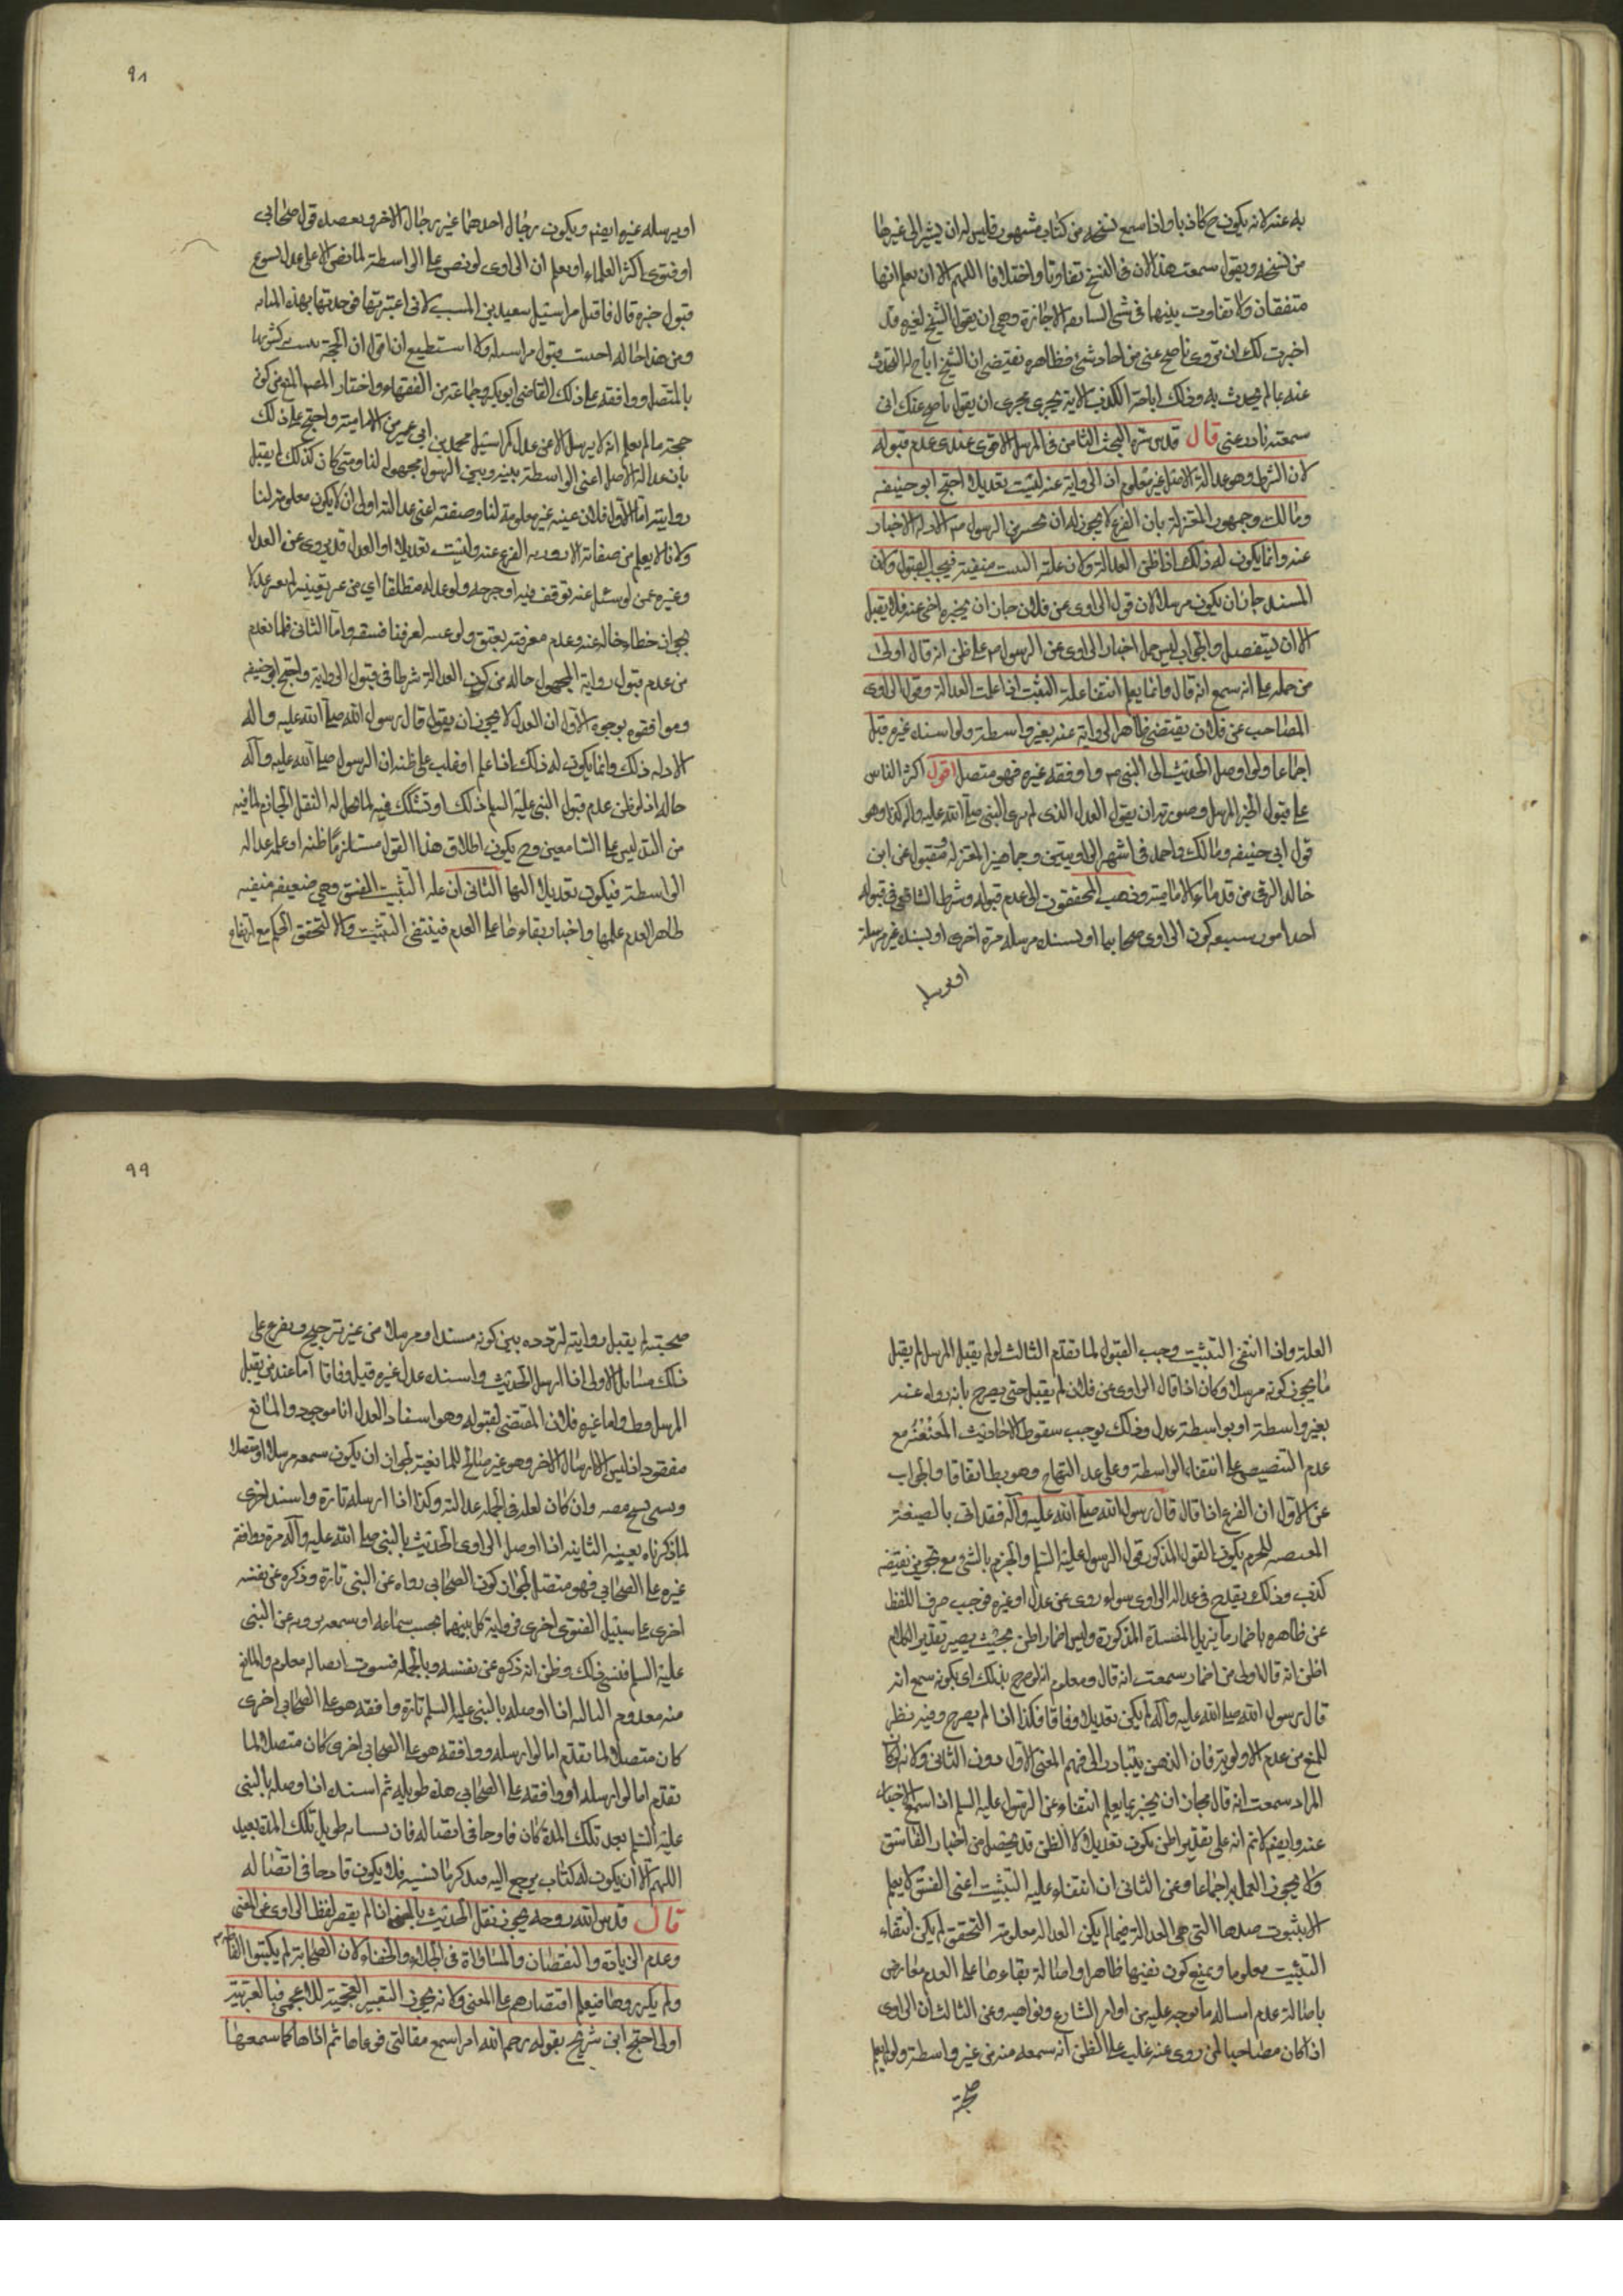 به عنه لانه يكون ح كاذبا واذا سمع نسخه من كتاب مشهور فليس له ان يشير الى غيرها
من نسخه ويقول سمعت هذا لان فى النسخ تفاوتا واختلافا اللهم الا ان يعلم انها
متفقان ولا تفاوت بينها فى شئ السابعه الاجازة وهي ان يقول الشيخ لغيره قد
اخبرت لك ان تروى ما صح عنى من احاديثى فظاهره تقتضى ان الشيخ اباح له التحدث
عنه بما لم يحدث به وذلك اباحة الكذب الا انه يجرى مجرى ان يقول ما صح عنك انى
سمعته فاروه عنى قال قدس سره البحث الثامن فى المرسل الاقوى عندى عدم قبوله
لان الشرط وهو عدالة الاصل غير معلوم اذ الرواية عنه ليست تعديلا احتج ابو حنيفه
ومالك وجمهور المعتزلة بان الفرع لا يجوز له ان يخبر عن الرسول ص الا وله الاخبار
عنه وانما يكون له ذلك اذا ظن العدالة ولان علة التثبت منفية فيجب القبول ولان
المسند جاز ان يكون مرسلا لان قول الراوى عن فلان جاز ان يخبره اخر عنه فلا يقبل
الا ان يتفصل والجواب ليس حمل اخبار الراوى عن الرسول ص على ظن انه قال اولى
من حمله على انه سمع انه قال وانما يعلم انتفا علة التثبت اذا علمت العدالة وقول الراوى
المصاحب عن فلان يقتضى ظاهرا الرواية عنه بغير واسطة ولو اسنده غيره قبل
اجماعا ولو اوصل الحديث الى النبى ص واوقفه غيره فهو متصل اقول اكثر الناس
على قبول الخبر المرسل وصورته ان يقول العدل الذى لم ير النبى صلى الله عليه واله كذا وهو
قول ابى حنيفه ومالك واحمد فى اشهر الروايتين وجماهير المعتزله ومنقول عن ابن
خالد البرقى من قدماء الامامية وذهب المحققون الى عدم قبوله وشرط الشافعى فى قبوله
احد امور سبعه كون الراوى صحابيا او يسنده مرسله مرة اخرى او يسنده غير مرسله
او يرسله
٩٨
او يرسله غيره ايضم ويكون رجال احدهما غير رجال الاخر ويعضده قول صحابى
او فتوى اكثر العلماء او يعلم ان الراوى لو نص على الواسطة لما نص الا على عدل يسوغ
قبول خبره قال فاقبل مراسيل سعيد بن المسيب لانى اعتبرتها فوجدتها بهذه المثابه
ومن هذا حاله احببت قبول مراسيله ولا استطيع ان اقول ان الحجة تثبت كثبوتها
بالمتصل ووافقه على ذلك القاضى ابو بكر وجماعة من الفقهاء واختار المصم المنع من كون
حجة ما لم يعلم انه لا يرسل الا عن عدل كمراسيل محمد بن ابى عمير من الامامية واحتج على ذلك
بان عدالة الاصل اعنى الواسطة بينه وبين الرسول مجهول لنا ومتى كان كذلك لم يقبل
روايته اما الاول فلان عينه غير معلومة لنا وصفته اعنى عدالته اولى ان لا يكون معلومة لنا
ولانا لا يعلم من صفاته الا رواية الفرع عنه وليست تعديلا او العدل قد يروى عن العدل
وغيره عمن لو سئل عنه توقف فيه او جرحه ولو عدله مطلقا اي من غير تعيينه لم يصر عدلا
بجواز خطاء خاله عنه وعدم معرفته بفسق ولو عينه لعرفنا فسقه واما الثانى فلما تقدم
من عدم قبول رواية المجهول حاله من كون العدالة شرطا فى قبول الرواية واحتج ابو حنيفه
وموافقوه بوجوه الاول ان العدل لا يجوز ان يقول قال رسول الله صلى الله عليه واله
الا وله ذلك وانما يكون له ذلك اذا علم او غلب على ظنه ان الرسول صلى الله عليه وآله
حاله اذ لو ظن عدم قبول النبى عليه السلم ذلك او تشكك فيه لما حل له النقل الجازم لما فيه
من التدليس على السامعين وح يكون اطلاق هذا القول مستلزما ظنه او علمه عداله
الواسطة فيكون تعديلا لها الثانى ان علة التثبت الفسق وهي ضعيفه منفيه
ظاهر العدم علمها واخبار وبقاءها على العدم فينتفى التثبت والا لتحقق الحكم مع ارتفاع
العلة واذا انتفى التثبت وجب القبول لما تقدم الثالث لو لم يقبل المرسل لم يقبل
ما يجوز كونه مرسلا وكان اذا قال الراوى عن فلان لم يقبل حتى يصرح بانه رواه عنه
بغير واسطة او بواسطة عدل وذلك يوجب سقوط الاحاديث المعنعنة مع
عدم التنصيص على انتفاء الواسطة وعلى عدالتها وهو بط اتفاقا والجواب
عن الاول ان الفرع اذا قال قال رسول الله صلى الله عليه وآله فقد اتى بالصيغة
المقتضيه للجزم بكون القول المذكور قول الرسول عليه السلم والجزم بالشئ مع تجويز نقيضه
كذب وذلك يقدح فى عدالة الراوى سواء روى عن عدل او غيره فوجب صرف اللفظ
عن ظاهره باضمار ما يزيل المفسدة المذكورة وليس اضمار اظن بحيث يصير تقدير الكلام
اظن انه قال اولى من اضمار سمعت انه قال ومعلوم انه لو صرح بذلك اى بكونه سمع انه
قال رسول الله صلى الله عليه وآله لم يكن تعديلا وفاقا فكذا اذا لم يصرح وفيه نظر
للمنع من عدم الاولوية فان الذهن يتبادر الى فهم المعنى الاول دون الثانى ولانه لو كا
المراد سمعت انه قال لجاز ان يخبر بما يعلم انتفاء عن الرسول عليه السلم اذا اسمع الاخبار
عنه وايضم لا نم انه على تقدير اظن يكون تعديلا لا الظن قد يحصل من اخبار الفاسق
ولا يجوز العمل به اجماعا وعن الثانى ان انتفاء علية التثبت اعنى الفسق لا يعلم
الا بثبوت ضدها التى هى العدالة فيما لم يكن العداله معلومة التحقق لم يكن انتفاء
التثبت معلوما ويمنع كون نفيها ظاهرا واصالة بقاءها على العدم معارض
باصالة عدم امساله ما توجه عليه من اوامر الشارع ونواهيه وعن الثالث ان الراوى
اذا كان مصاحبا لمن روى عنه غلب على الظن انه سمعه منه من غير واسطة ولو لم يعلم
صحبته
٩٩
صحبته لم يقبل روايته لتردده بين كونه مسندا او مرسلا من غير ترجيح ويفرع على
ذلك مسائل الاولى اذا ارسل الحديث واسنده عدل غيره قبل وفاقا اما عند من يقبل
المرسل وط واما غيره فلان المقتضى لقبوله وهو اسناد العدل اذا موجود والمانع
مفقود اذ ليس الا ارسال الاخر وهو غير صالح للمانعية لجواز ان يكون سمعه مرسلا او متصلا
وان كان لعله فى الجمله عدالة وكذا اذا ارسله تارة واسنده اخرى
لما ذكرناه بعينه الثانيه اذا اوصل الراوى الحديث بالنبى صلى الله عليه وآله مرة ووافقه
غيره على الصحابى فهو متصل لجواز كون الصحابى رواه عن النبى تارة وذكره عن نفسه
اخرى على سبيل الفتوى اخرى فروايه كل منهما بحسب سماعه او سمعه يرويه عن النبى
عليه السلم فنسى ذلك وظن انه ذكره عن نفسه وبالجمله فثبوت اتصاله معلوم والمانع
منه معدوم الثالثه اذا اوصله بالنبى عليه السلم تارة وافقه هو على الصحابى اخرى
كان متصلا لما تقدم اما لو ارسله ووافقه هو على الصحابى اخرى كان متصلا لما
تقدم اما لو ارسله او وافقه على الصحابى مدة طويله ثم اسنده اذا وصله بالنبى
عليه السلم بعد تلك المدة كان قادحا فى اتصاله فان نسيانه طويل تلك المدة بعيد
اللهم الا ان يكون له كتاب يرجع اليه فيذكر ما نسيه فلا يكون قادحا فى اتصاله
قال قدس الله روحه يجوز نقل الحديث بالمعنى اذا لم يقصر لفظ الراوى عن المعنى
وعدم الزيادة والنقصان والمساواة فى الجلاء والخفاء لان الصحابة لم يكتبوا الفاظه
ولم يكرروها فيعلم اقتصارهم على المعنى ولانه يجوز التعبير بالعجمية للاعجمى فبالعربية
اولى احتج ابن شريح بقوله رحم الله امرا سمع مقالتى فوعاها ثم اداها كما سمعها